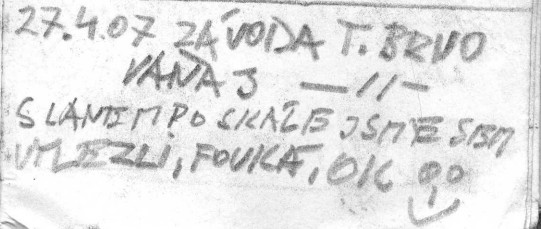 27.4.07 ZÁVODA T. BRNO
VAŇA J —//—
S LANEM PO SKÁLE JSME SEM
VYLEZLI, FOUKÁ, OK